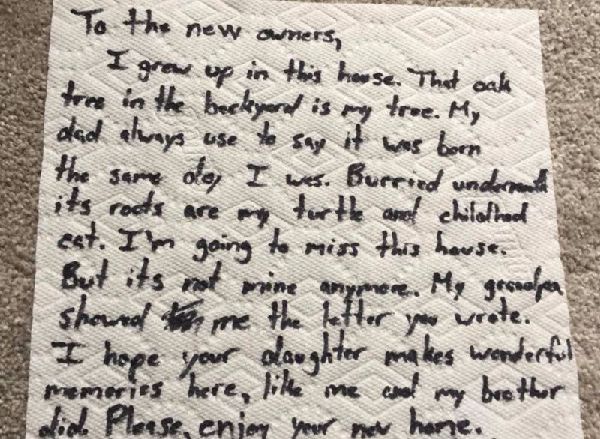 To the new owners,
I grew up in this house. That oak
tree in the backyard is my tree. My
dad always use to say it was born
the same day I was. Burried underneath
its roots are my turtle and childhood
cat. I'm going to miss this house.
But its not mine anymore. My grandpa
showed me the letter you wrote.
I hope your daughter makes wonderful
memories here, like me and my brother
did. Please, enjoy your new home.